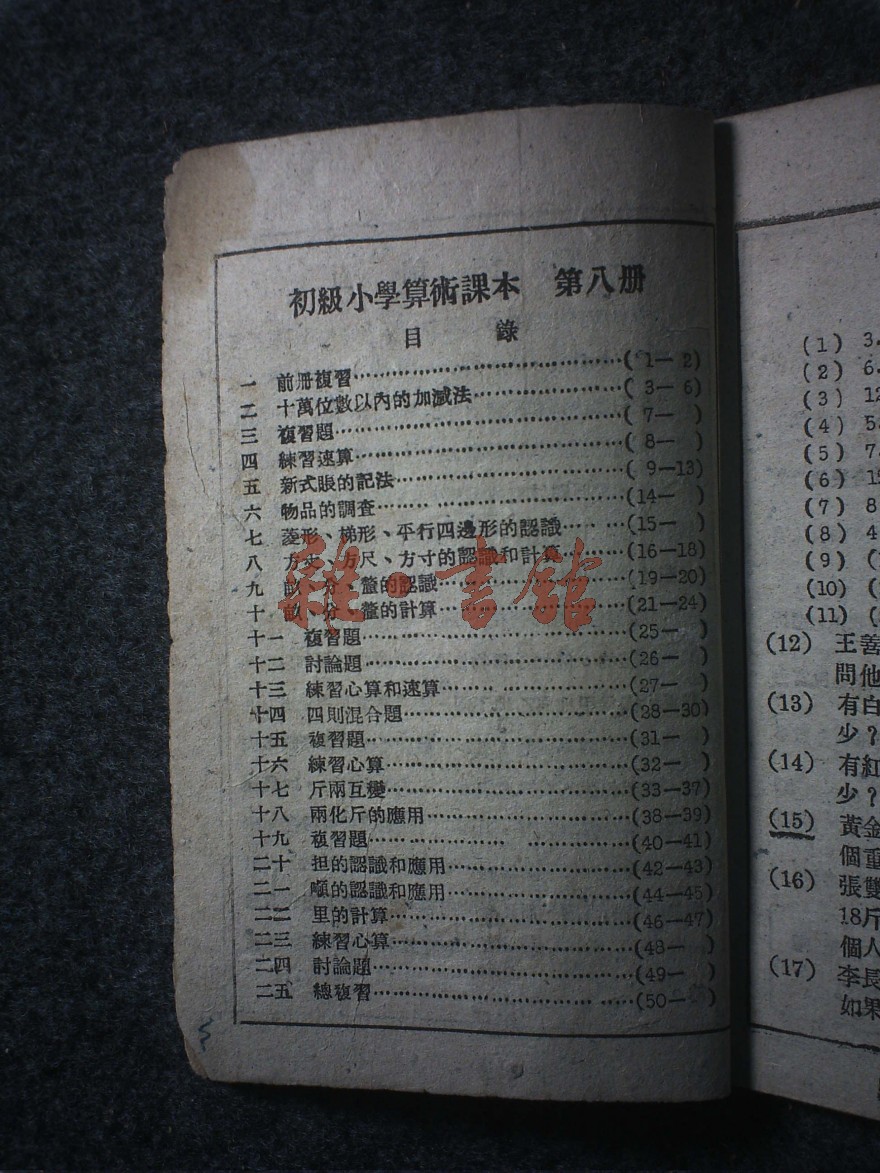 初級小學算術課本　第八册
目　錄
一　前册複習……(1—2)
二　十萬位數以內的加減法……(3—6)
三　複習題……(7—　)
四　練習速算……(8—　)
五　新式賬的記法……(9—13)
六　物品的調查……(14—　)
七　菱形、梯形、平行四邊形的認識……(15—　)
八　方丈、方尺、方寸的認識和計算……(16—18)
九　畝、分、釐的認識……(19—20)
十　畝、分、釐的計算……(21—24)
十一　複習題……(25—　)
十二　討論題……(26—　)
十三　練習心算和速算……(27—　)
十四　四則混合題……(28—30)
十五　複習題……(31—　)
十六　練習心算……(32—　)
十七　斤兩互變……(33—37)
十八　兩化斤的應用……(38—39)
十九　複習題……(40—41)
二十　担的認識和應用……(42—43)
二一　噸的認識和應用……(44—45)
二二　里的計算……(46—47)
二三　練習心算……(48—　)
二四　討論題……(49—　)
二五　總複習……(50—　)
雜·書館
(1) 3.
(2) 6.
(3) 12
(4) 5
(5) 7.
(6) 1
(7) 8
(8) 4
(9) (
(10) (
(11) (
(12) 王善
問他
(13) 有白
少？
(14) 有紅
少？
(15) 黃金
個重
(16) 張雙
18斤
個人
(17) 李長
如果